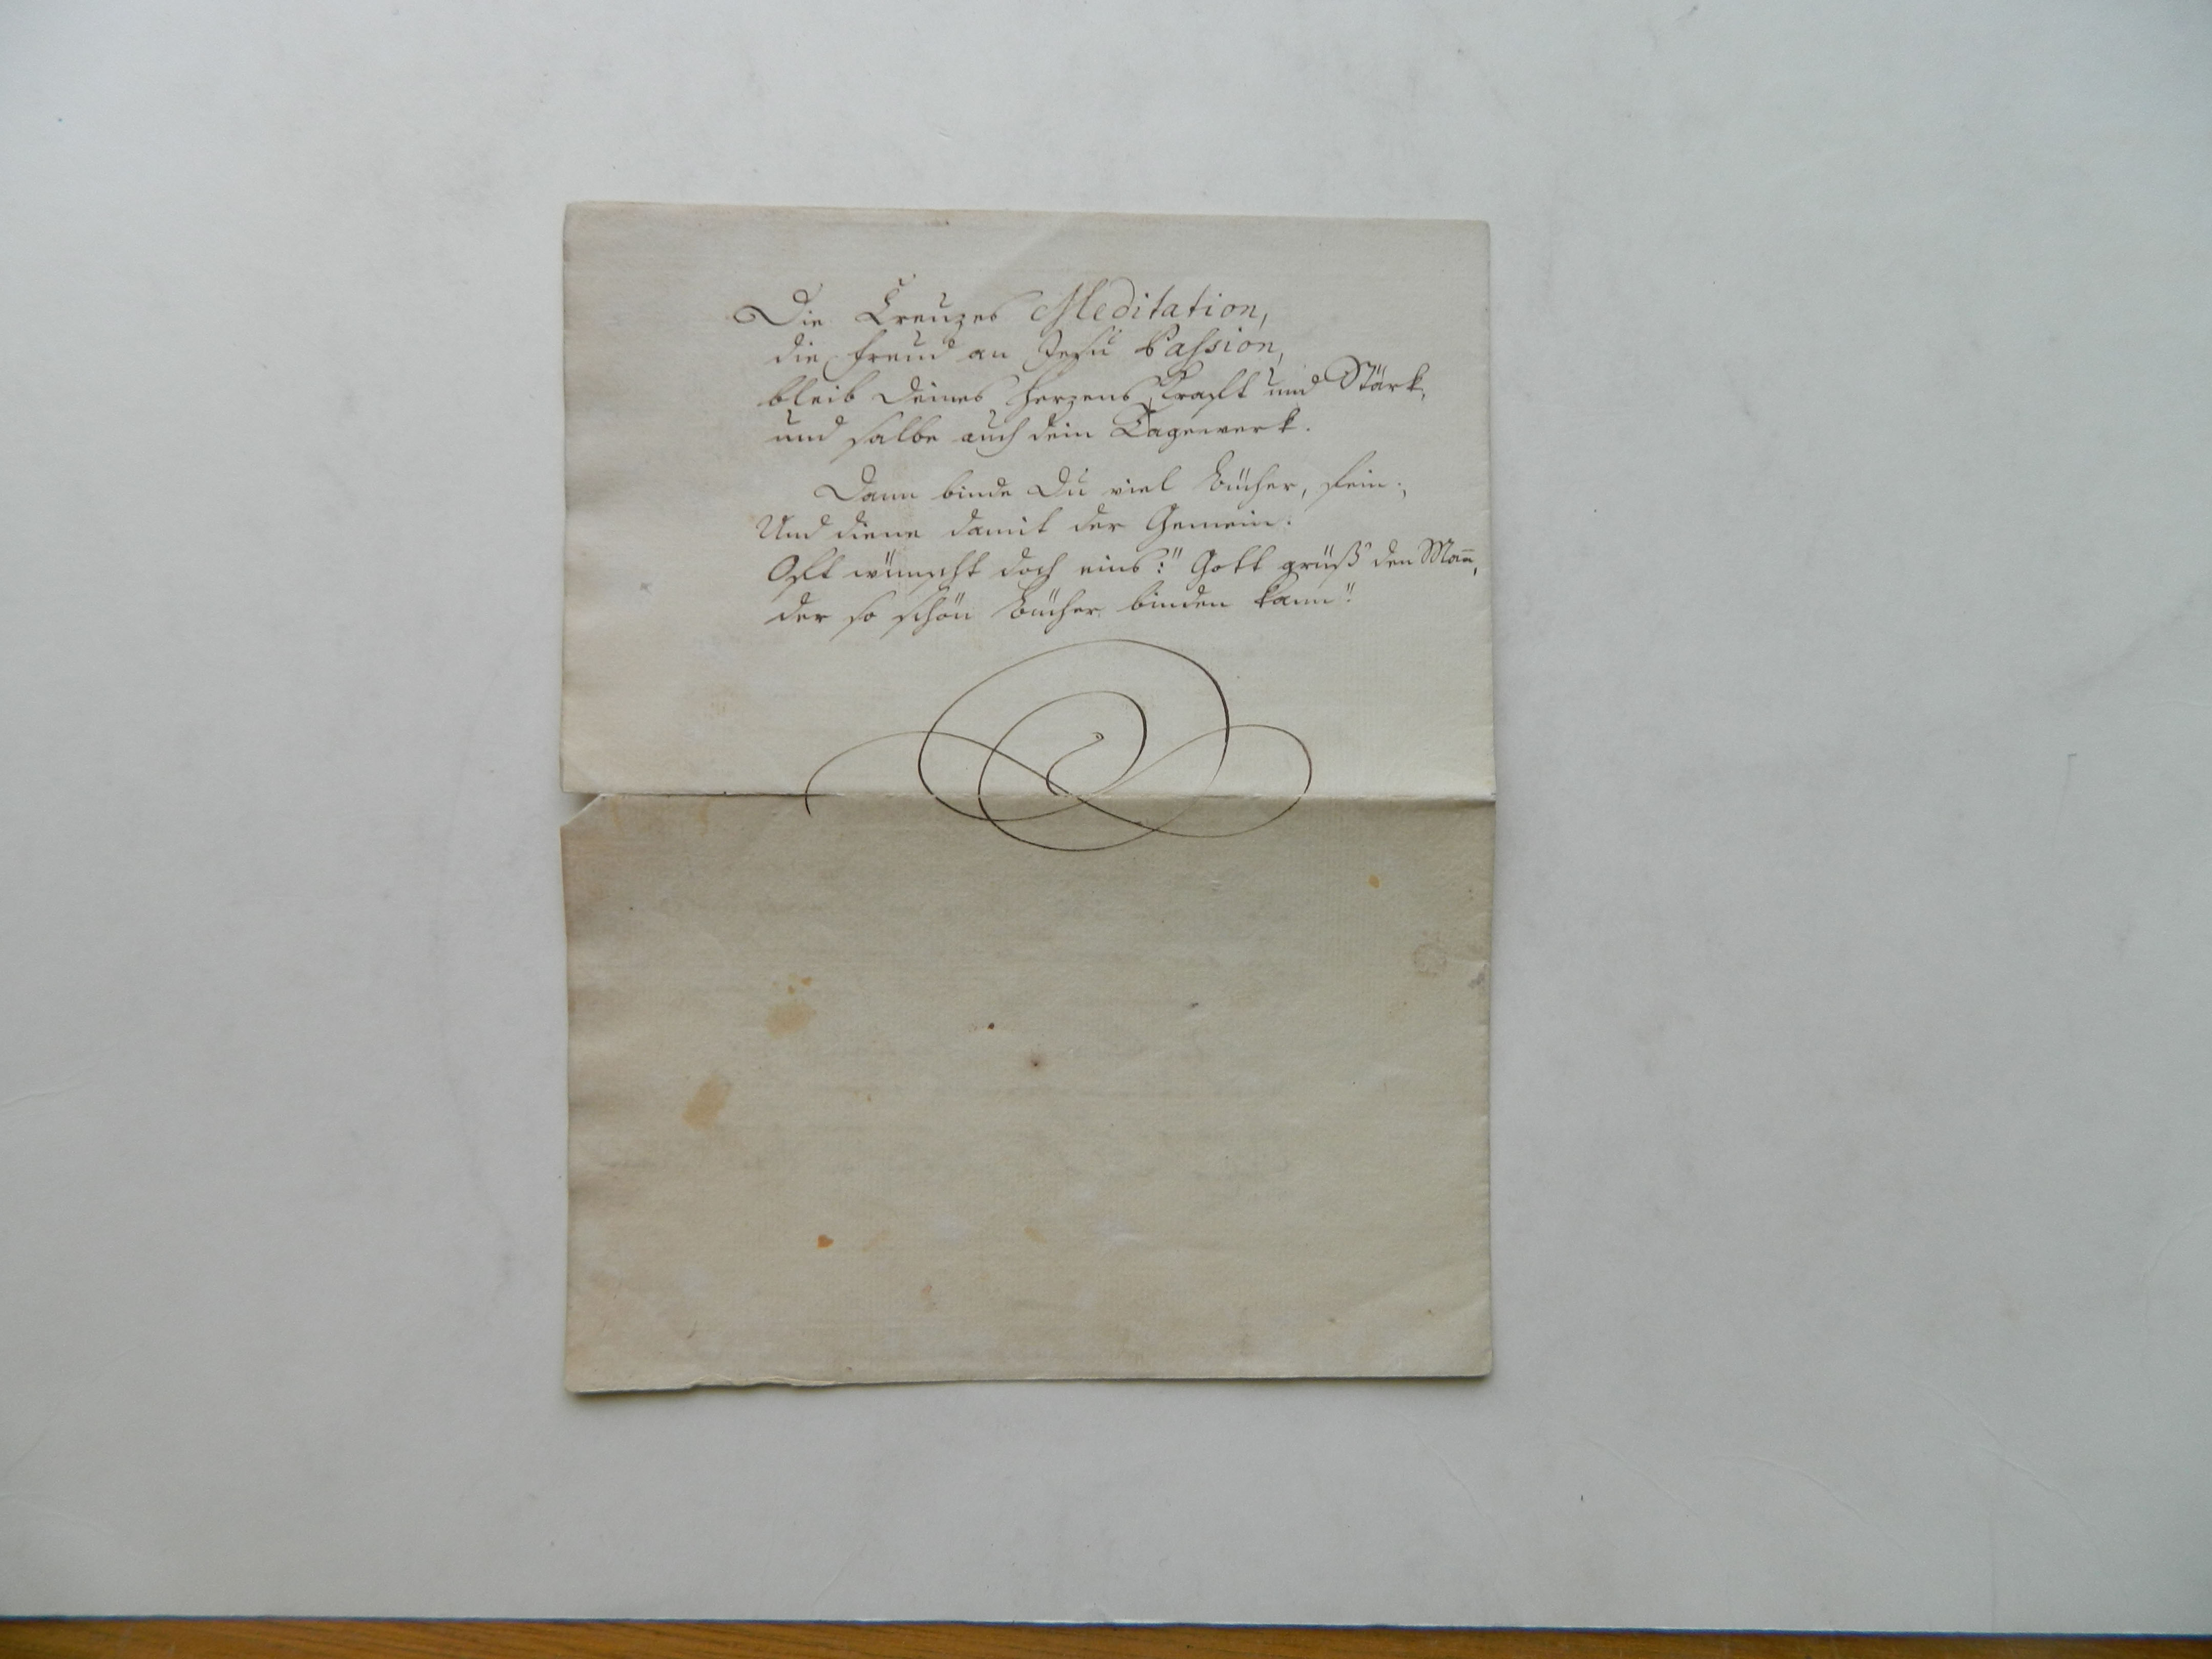 Die Creuzes Meditation,
die Freud an Jesu Passion,
bleib Deines Herzens Krafft und Stärk,
und salbe auch dein Tagewerk.
Dann binde Du viel Bücher, fein;
Und diene damit der Gemein.
Oft wünscht doch eins: "Gott grüß den Man̅,
der so schön Bücher binden kann"